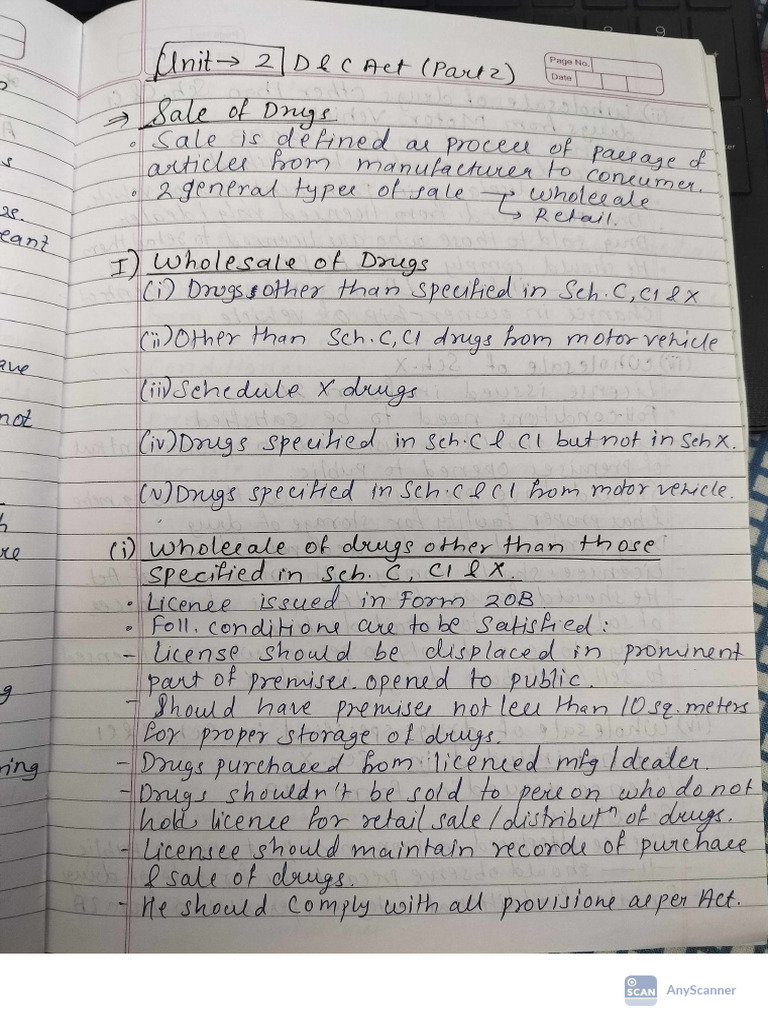 Unit → 2 D & C Act (Part 2)
Page No.
Date
⇒ Sale of Drugs
• Sale is defined as process of passage of
articles from manufacturer to consumer.
• 2 general types of sale → Wholesale
→ Retail.
I) Wholesale of Drugs
(i) Drugs other than specified in Sch. C, C1 & X
(ii) Other than Sch. C, C1 drugs from motor vehicle
(iii) Schedule X drugs
(iv) Drugs specified in Sch. C & C1 but not in Sch X.
(v) Drugs specified in Sch. C & C1 from motor vehicle.
(i) Wholesale of drugs other than those
specified in Sch. C, C1 & X.
• License issued in Form 20B
• Foll. conditions are to be satisfied:
- License should be displaced in prominent
part of premises opened to public.
- Should have premises not less than 10 sq. meters
for proper storage of drugs.
- Drugs purchased from licensed mfg/dealer.
- Drugs shouldn't be sold to person who do not
hold license for retail sale/distributⁿ of drugs.
- Licensee should maintain records of purchase
& sale of drugs.
- He should comply with all provisions as per Act.
eant
ave
not
re
g
ring
SCAN AnyScanner